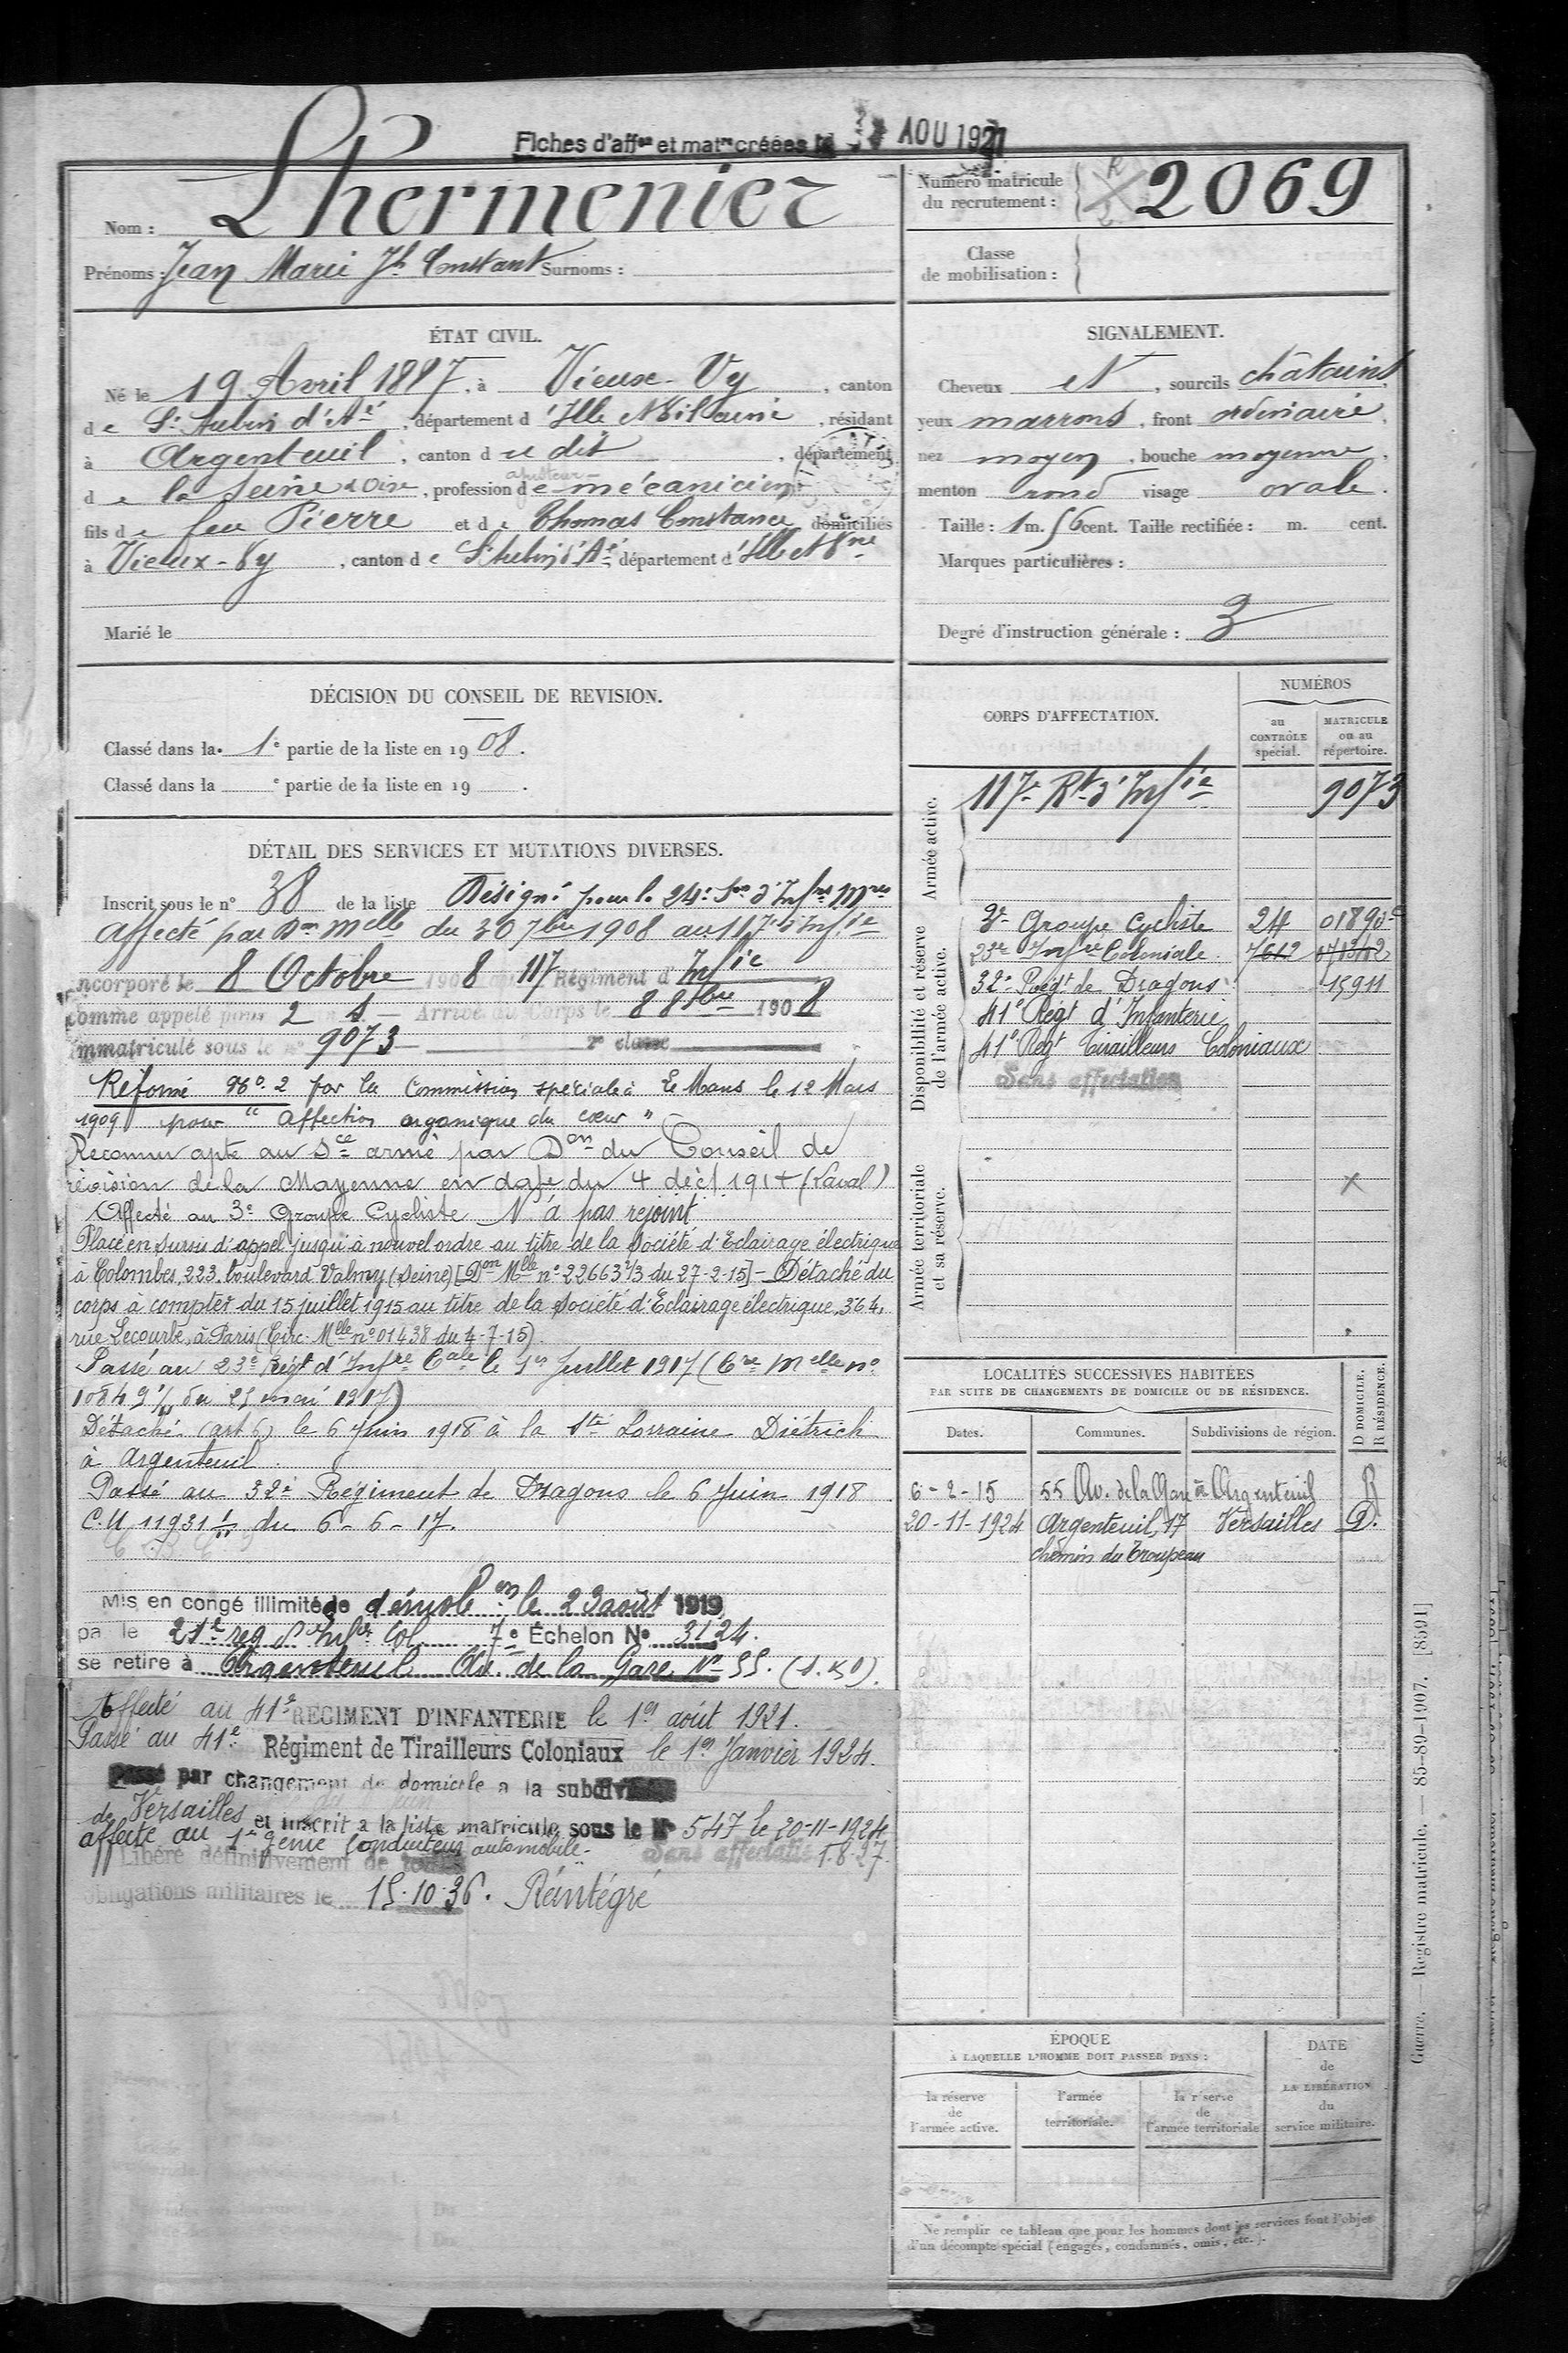 Fiches d'affon et matre créées le AOU 1921
Nom : Lhermenier
Prénoms : Jean Marie Jh Constant Surnoms :
Numéro matricule du recrutement : 2069
Classe de mobilisation :
ÉTAT CIVIL.
Né le 19 Avril 1887, à Vieux-Vy, canton
de St Aubin d'Ané, département d'Ille et Vilaine, résidant
à Argenteuil, canton d u dit, département
de la Seine et Oise, profession de ajusteur mécanicien
fils de feu Pierre et de Thomas Constance domiciliés
à Vieux-Vy, canton de St Aubin d'Aé, département d'Ille et Vne
Marié le
SIGNALEMENT.
Cheveux et, sourcils châtains,
yeux marrons, front ordinaire,
nez moyen, bouche moyenne,
menton rond visage ovale.
Taille : 1 m. 56 cent. Taille rectifiée : m. cent.
Marques particulières :
Degré d'instruction générale : 3
DÉCISION DU CONSEIL DE REVISION.
Classé dans la 1e partie de la liste en 1908.
Classé dans la e partie de la liste en 19 .
DÉTAIL DES SERVICES ET MUTATIONS DIVERSES.
Inscrit sous le n° 38 de la liste Désigné pour la 24e Son d'Infirs Mres
Affecté par Don Melle du 30 7bre 1908 au 117e d'Infie
Incorporé le 8 Octobre 1908 au 117 Régiment d'Infie
comme appelé pour 2 ans — Arrivé au Corps le 8 8bre 1908
Immatriculé sous le n° 9073 2e classe
Réformé No. 2 par la Commission spéciale à Le Mans le 12 Mars
1909 pour "Affection organique du cœur"
Reconnu apte au Sce armé par Don du Conseil de
révision de la Mayenne en date du 4 déc. 1914 (Laval)
Affecté au 3e Groupe Cycliste N'a pas rejoint
Placé en sursis d'appel jusqu'à nouvel ordre au titre de la Société d'Eclairage électrique
à Colombes, 223, boulevard Valmy (Seine) [Don Mlle n° 22663 1/3 du 27-2-15] – Détaché du
corps à compter du 15 juillet 1915 au titre de la Société d'Eclairage électrique, 364,
rue Lecourbe, à Paris (Circ. Mlle n° 01438 du 4-7-15).
Passé au 23e Régt d'Infre Cale le 1er Juillet 1917 (Cre Melle no
10849 1/11 du 25 mai 1917)
Détaché (art 6) le 6 Juin 1918 à la Sté Lorraine Diétrich
à Argenteuil.
Passé au 32e Régiment de Dragons le 6 Juin 1918
C.M 11931 1/11 du 6-6-17.
Mis en congé illimité de démobon le 23 août 1919
par le 21e reg d'Infie Col 7e Échelon N° 3124.
se retire à Argenteuil Av. de la Gare N° 55. (S. & O).
Affecté au 41e RÉGIMENT D'INFANTERIE le 1er août 1921.
Passé au 41e Régiment de Tirailleurs Coloniaux le 1er Janvier 1924.
Passé par changement de domicile à la subdivision
de Versailles et inscrit à la liste matricule sous le N° 547 le 20-11-1924
affecté au 1er génie Conducteur automobile.
Sans affectation 1.8.27.
Libéré définitivement de toutes
obligations militaires le 15.10.36. Réintégré
CORPS D'AFFECTATION.
NUMÉROS
au CONTRÔLE spécial.
MATRICULE ou au répertoire.
Armée active.
117e Rt d'Infie 9073
Disponibilité et réserve de l'armée active.
3e Groupe Cycliste 24 01890
23e Infre Coloniale 7612
32e Régt de Dragons 15911
41e Régt d'Infanterie
41e Régt Tirailleurs Coloniaux
Sans affectation
Armée territoriale et sa réserve.
LOCALITÉS SUCCESSIVES HABITÉES
PAR SUITE DE CHANGEMENTS DE DOMICILE OU DE RÉSIDENCE.
Dates. Communes. Subdivisions de région. D DOMICILE. R RÉSIDENCE.
6-2-15 55 Av. de la Gare à Argenteuil R
20-11-1924 Argenteuil, 17 Versailles D.
chemin du Troupeau
ÉPOQUE
À LAQUELLE L'HOMME DOIT PASSER DANS :
la réserve de l'armée active.
l'armée territoriale.
la réserve de l'armée territoriale
DATE de LA LIBÉRATION du service militaire.
Ne remplir ce tableau que pour les hommes dont les services font l'objet
d'un décompte spécial (engagés, condamnés, omis, etc.).
Guerre. — Registre matricule. — 85-89-1907. [8591]